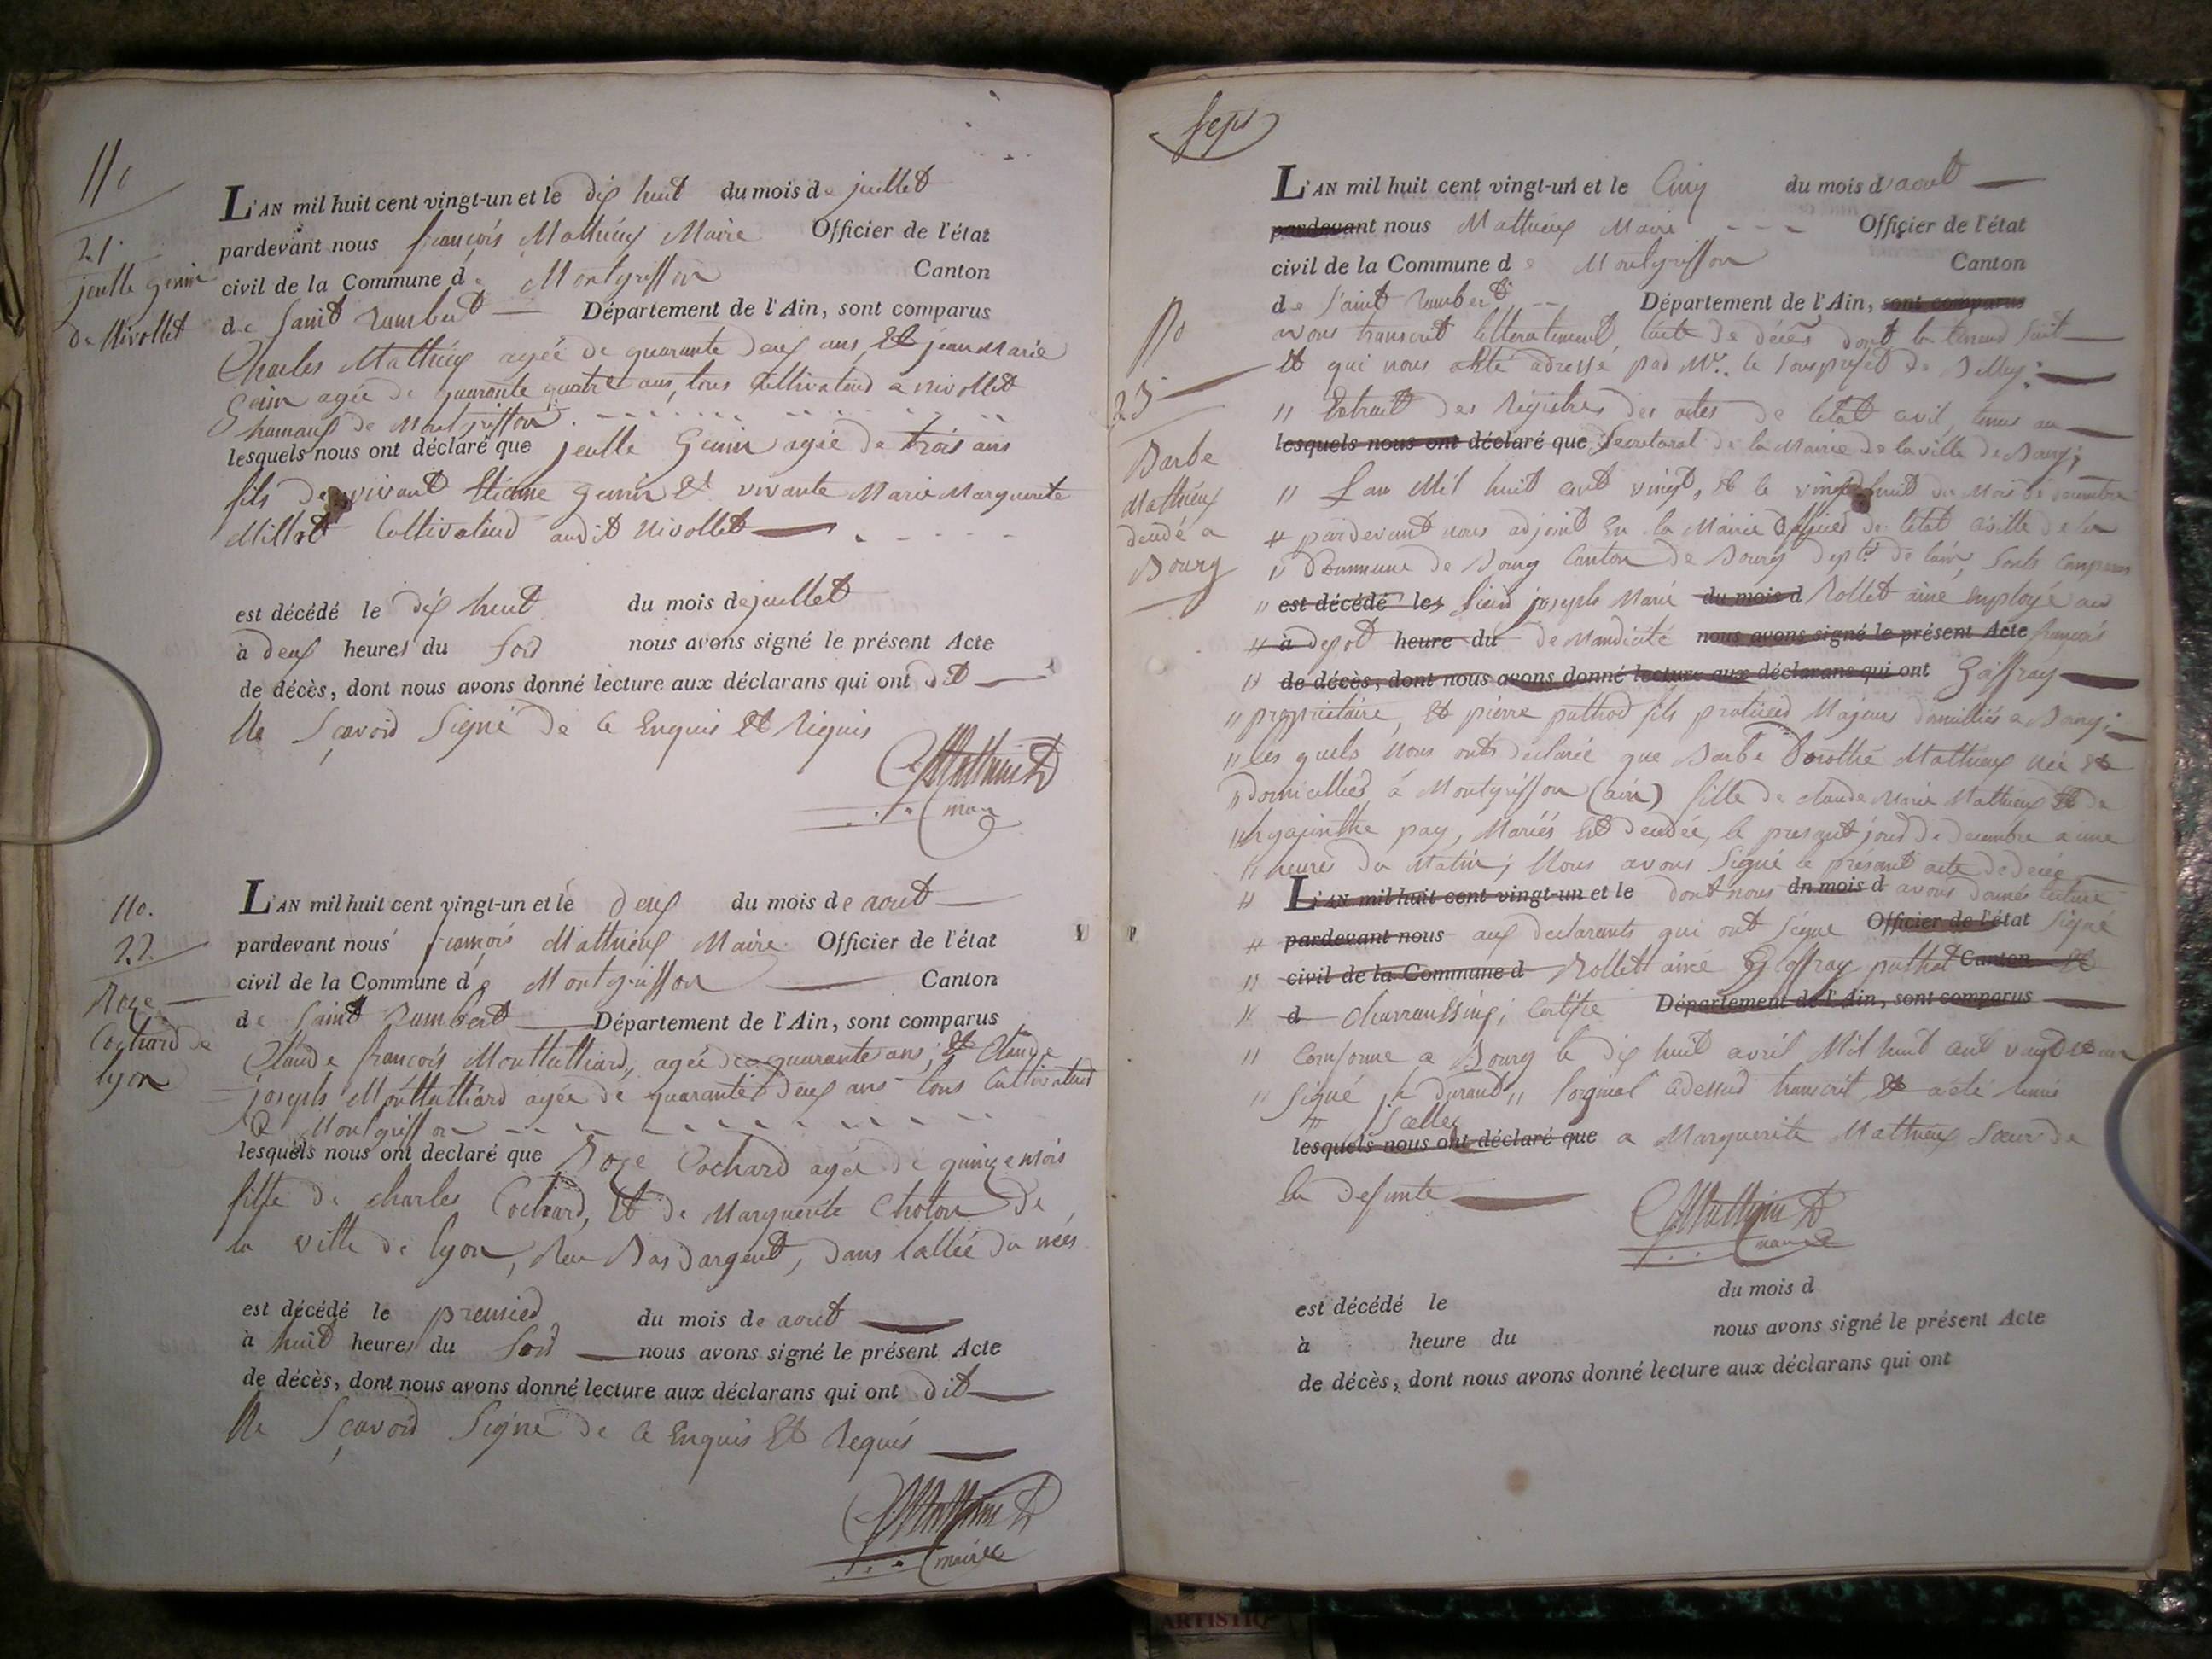 No
21.
jeulle genin
de Nivollet
L'AN mil huit cent vingt-un et le dix huit du mois de juillet
pardevant nous françois Mathieux Maire Officier de l'état
civil de la Commune de Montgriffon Canton
de Saint Rambert Département de l'Ain, sont comparus
Charles Mathieux agée de quarante deux ans, Et jean Marie
Genin agée de quarante quatre ans, tous Cultivateurs a nivollet
hamaux de Montgriffon
lesquels nous ont déclaré que jeulle Genin agée de trois ans
fils de vivant Etienne genin Et vivante Marie Marguerite
Millot Cultivateurs audit Nivollet
est décédé le dix huit du mois de juillet
à deux heures du soir nous avons signé le présent Acte
de décès, dont nous avons donné lecture aux déclarans qui ont dit
Ne Sçavoir Signé de ce Enquis Et Requis
Mathieux
maire
No.
22.
Roze
Cochard de
lyon
L'AN mil huit cent vingt-un et le deux du mois de aout
pardevant nous françois Mathieux Maire Officier de l'état
civil de la Commune de Montgriffon Canton
de Saint Rambert Département de l'Ain, sont comparus
Claude françois agée de quarante ans, Et Claude
joseph agée de quarante deux ans tous Cultivateurs
a Montgriffon
lesquels nous ont declaré que Roze Cochard agée de quinze mois
fille de charles Cochard, Et de Marguerite Choton de
la ville de lyon, Rue Bas dargent, dans lallée du
est décédé le premier du mois de aout
à huit heures du Soir nous avons signé le présent Acte
de décès, dont nous avons donné lecture aux déclarans qui ont dit
Ne Sçavoir Signé de ce Enquis Et Requis
Mathieux
maire
Sept
No
23
Barbe
Mathieux
décédé a
Bourg
L'AN mil huit cent vingt-un et le Cinq du mois d'aout
pardevant nous Mathieux Maire Officier de l'état
civil de la Commune de Montgriffon Canton
de Saint Rambert Département de l'Ain, sont comparus
avons transcrit litteralement, lacte de décès dont la teneur suit
Et qui nous a été adressé par Mr. le Sousprefet de Belley:
" Extrait des Registres des actes de létat civil, tenus au
lesquels nous ont déclaré que Secretariat de la Mairie de la ville de Bourg;
" L'an Mil huit cent vingt, Et le vingt huit du Mois de decembre
" pardevant nous adjoint En la Mairie officier de létat civille de la
" Commune de Bourg Canton de Bourg dept. de lain, Sont Comparus
" est décédé les Sieur joseph Marie du mois d Rollet ainé Employé au
" à depot heure du de Mandicité nous avons signé le présent Acte françois
" de décès, dont nous avons donné lecture aux déclarans qui ont
" proprietaire, Et pierre puthod fils Majeurs domicilliés a Bourg;
" les quels Nous ont déclaré que Barbe Dorothé Mathieux née Et
" domicilliée à Montgriffon (ain) fille de claude Marie Mathieux Et de
" hyacinthe pay, Mariés Est décédée, le present jour de decembre a une
" heures du Matin; Nous avons Signé le présent acte de décée
" L'AN mil huit cent vingt-un et le dont nous du mois d avons donné lecture
" pardevant nous aux declarants qui ont Signé Officier de l'état Signé
" civil de la Commune d Rollet ainé puthod Canton Et
" d Certifié Département de l'Ain, sont comparus
" Conforme a Bourg le dix huit avril Mil huit cent vingt et un
" Signé durand " loriginal cidessus transcrit Et a été remis
" Scellé
lesquels nous ont déclaré que a Marguerite Mathieux Sœur de
la defunte
Mathieux
maire
est décédé le du mois d
à heure du nous avons signé le présent Acte
de décès, dont nous avons donné lecture aux déclarans qui ont
ARTISTIQ